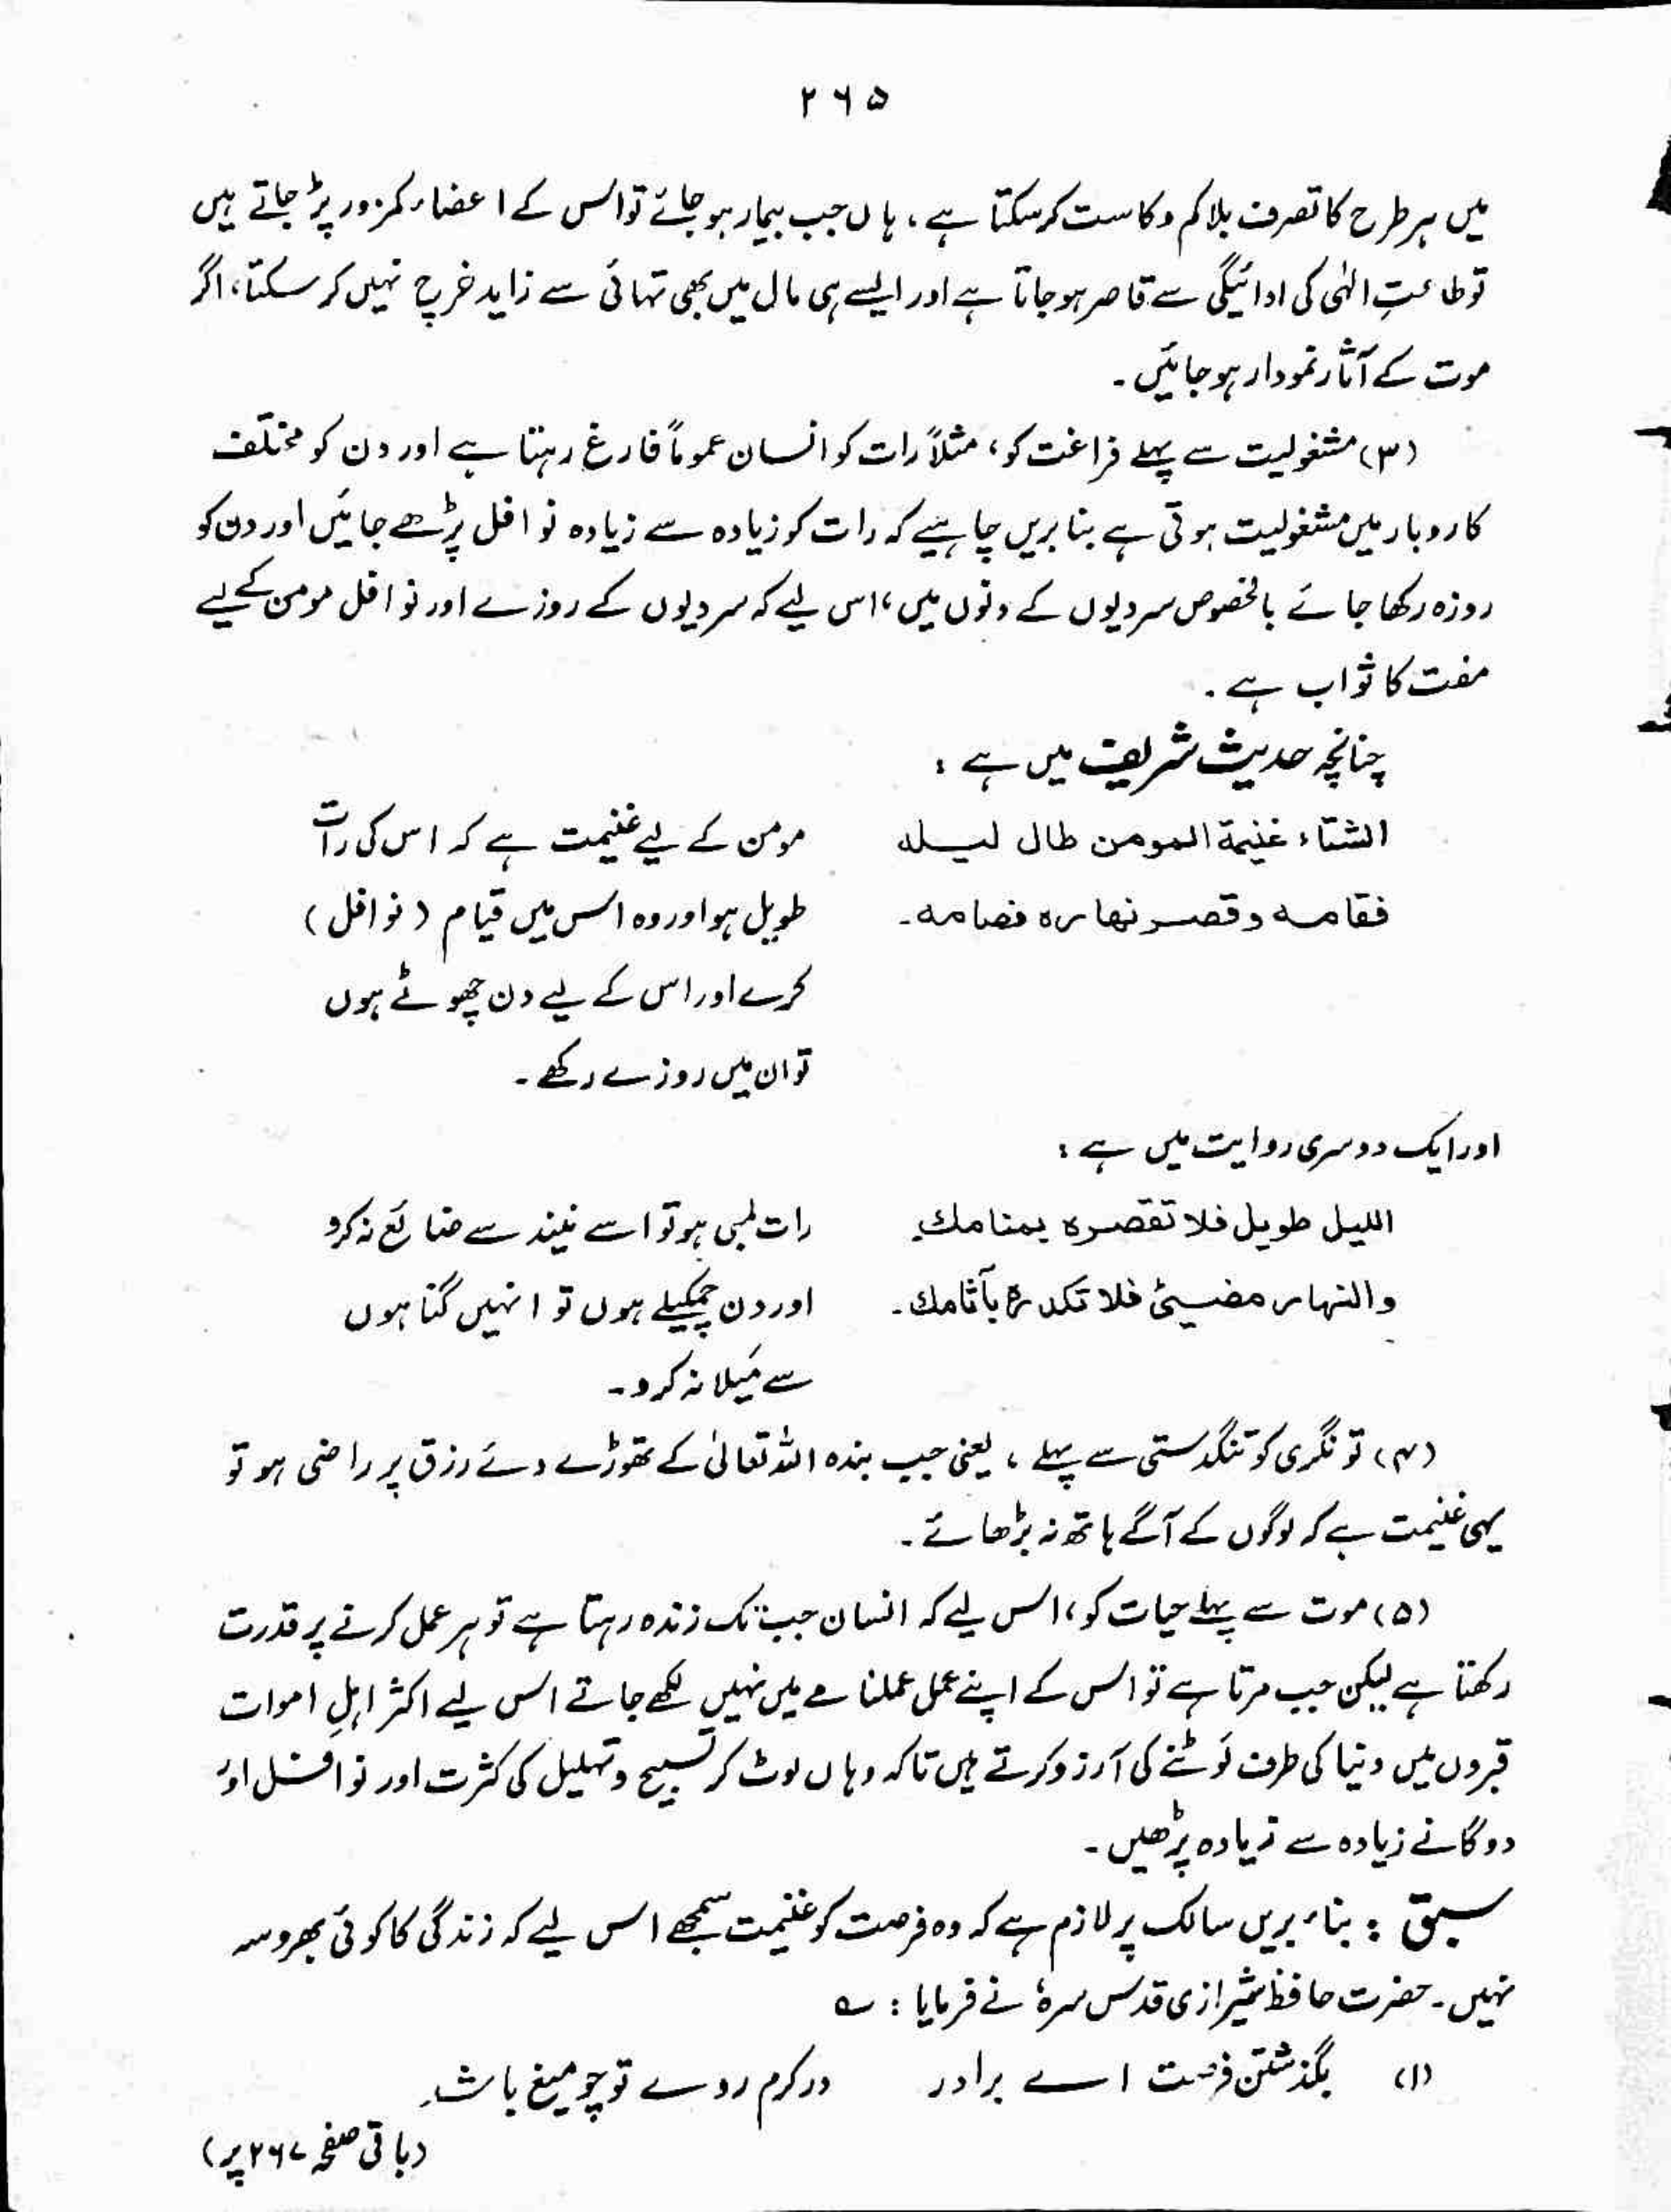 ۲۶۵
میں ہر طرح کا تصرف بلا کم و کاست کرسکتا ہے، ہاں جب بیمار ہو جائے تو اس کے اعضاء کمزور پڑ جاتے ہیں
تو طاعتِ الٰہی کی ادائیگی سے قاصر ہو جاتا ہے اور ایسے ہی مال میں بھی تہائی سے زاید خرچ نہیں کر سکتا، اگر
موت کے آثار نمودار ہو جائیں۔
(۳) مشغولیت سے پہلے فراغت کو، مثلاً رات کو انسان عموماً فارغ رہتا ہے اور دن کو مختلف
کاروبار میں مشغولیت ہوتی ہے بنا بریں چاہیے کہ رات کو زیادہ سے زیادہ نوافل پڑھے جائیں اور دن کو
روزہ رکھا جائے بالخصوص سردیوں کے دنوں میں، اس لیے کہ سردیوں کے روزے اور نوافل مومن کے لیے
مفت کا ثواب ہے۔
چنانچہ حدیث شریف میں ہے :
الشتاء غنیمة المومن طال لیله مومن کے لیے غنیمت ہے کہ اس کی رات
فقامه وقصر نهاره فصامه۔ طویل ہو اور وہ اس میں قیام (نوافل)
کرے اور اس کے لیے دن چھوٹے ہوں
تو ان میں روزے رکھے۔
اور ایک دوسری روایت میں ہے :
اللیل طویل فلا تقصره بمنامك رات لمبی ہو تو اسے نیند سے ضائع نہ کرو
والنهار مضیئ فلا تکدره بآثامك۔ اور دن چمکیلے ہوں تو انہیں گناہوں
سے مَیلا نہ کرو۔
(۴) تونگری کو تنگدستی سے پہلے، یعنی جب بندہ اللہ تعالیٰ کے تھوڑے دئے رزق پر راضی ہو تو
یہی غنیمت ہے کہ لوگوں کے آگے ہاتھ نہ بڑھائے۔
(۵) موت سے پہلے حیات کو، اس لیے کہ انسان جب تک زندہ رہتا ہے تو ہر عمل کرنے پر قدرت
رکھتا ہے لیکن جب مرتا ہے تو اس کے اپنے عمل عملنامے میں نہیں لکھے جاتے اس لیے اکثر اہلِ اموات
قبروں میں دنیا کی طرف لَوٹنے کی آرزو کرتے ہیں تاکہ وہاں لوٹ کر تسبیح و تہلیل کی کثرت اور نوافل اور
دوگانے زیادہ سے زیادہ پڑھیں۔
سبق : بناء بریں سالک پر لازم ہے کہ وہ فرصت کو غنیمت سمجھے اس لیے کہ زندگی کا کوئی بھروسہ
نہیں۔ حضرت حافظ شیرازی قدس سرہٗ نے فرمایا : ؎
(۱) بگذشتن فرصت اے برادر در کرم روے تو چو میغ باشد
(باقی صفحہ ۲۶۷ پر)